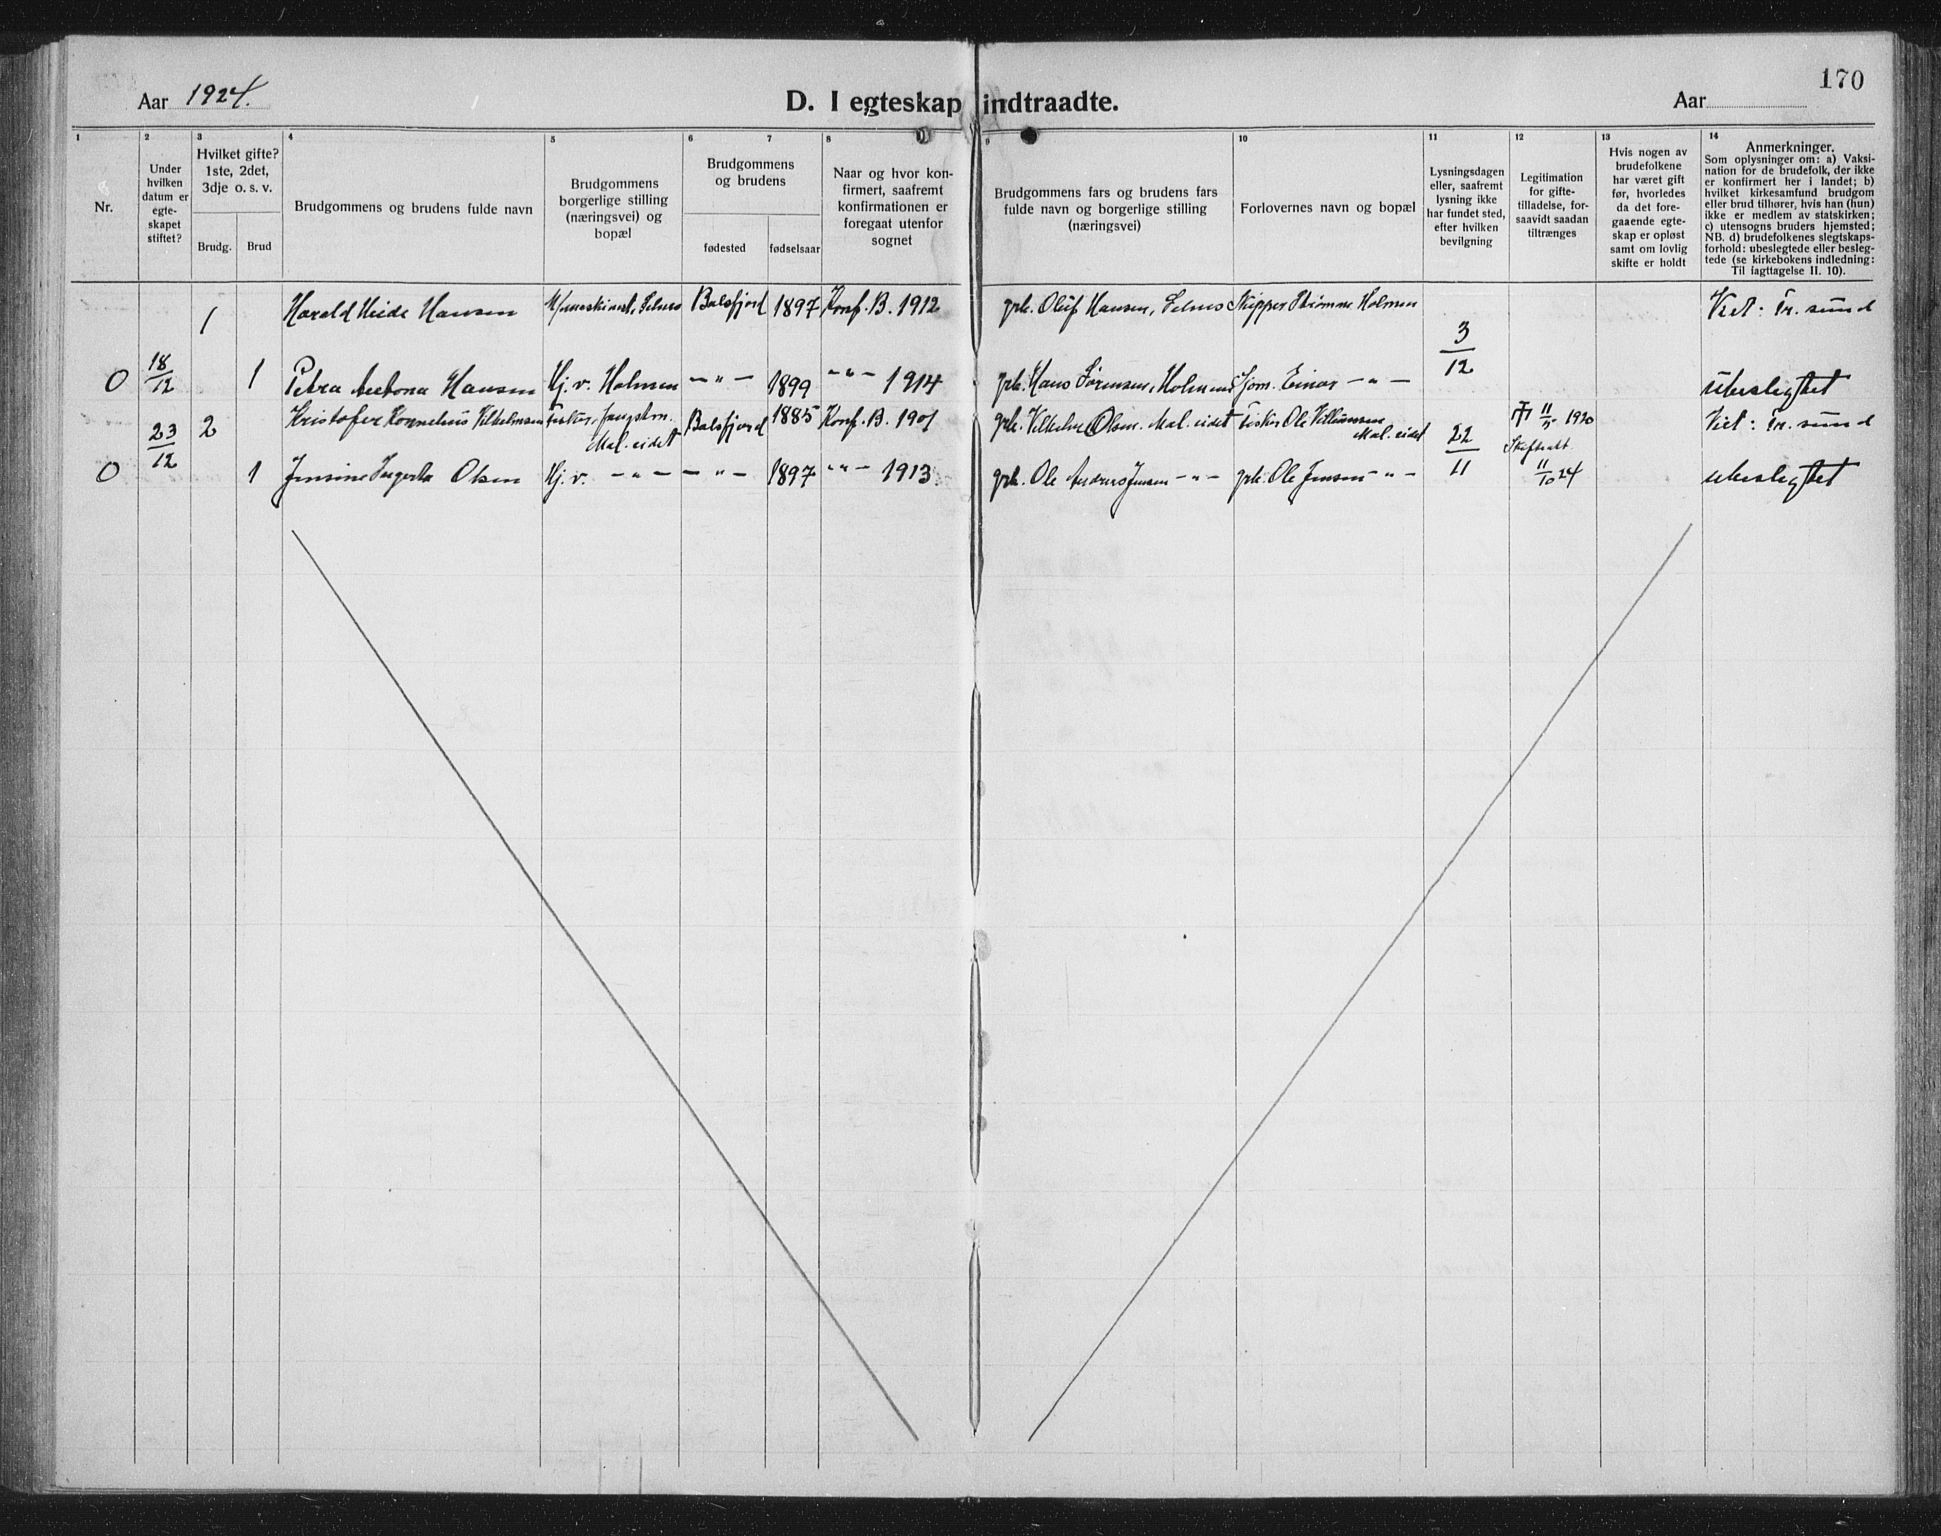 170
Aar 1924.
D. I egteskap indtraadte.
Aar
1
2
3
4
5
6
7
8
9
10
11
12
13
14
Nr.
Under
hvilken
datum er
egte-
skapet
stiftet?
Hvilket gifte?
1ste, 2det,
3dje o. s. v.
Brudg.
Brud
Brudgommens og brudens fulde navn
Brudgommens
borgerlige stilling
(næringsvei) og
bopæl
Brudgommens
og brudens
fødested
fødselsaar
Naar og hvor kon-
firmert, saafremt
konfirmationen er
foregaat utenfor
sognet
Brudgommens fars og brudens fars
fulde navn og borgerlige stilling
(næringsvei)
Forlovernes navn og bopæl
Lysningsdagen
eller, saafremt
lysning ikke
har fundet sted,
efter hvilken
bevilgning
Legitimation
for gifte-
tilladelse, for-
saavidt saadan
tiltrænges
Hvis nogen av
brudefolkene
har været gift
før, hvorledes
da det fore-
gaaende egte-
skap er opløst
samt om lovlig
skifte er holdt
Anmerkninger.
Som oplysninger om: a) Vaksi-
nation for de brudefolk, der ikke
er konfirmert her i landet; b)
hvilket kirkesamfund brudgom
eller brud tilhører, hvis han (hun)
ikke er medlem av statskirken;
c) utensogns bruders hjemsted;
NB. d) brudefolkenes slegtskaps-
forhold: ubeslegtede eller besleg-
tede (se kirkebokens indledning:
Til iagttagelse II. 10).
1 Harald Heide Hansen Selnes Balsfjord 1897 Konf. B. 1912 grb. Oluf Hansen, Selnes Skipper Strømme Holmen Viet: Tr. sund
0 18/12 1 Petra Hansen Hj. v. Holmen — " — 1899 — " — 1914 grb. Hans Sørensen, Holmenes Einar — " — 3/12 ubeslegtet
23/12 2 Kristofer Kornelius Vilhelmsen Fisker, Mal. eidet Balsfjord 1885 Konf. B. 1901 grb. Vilhelm Olsen. Mal. eidet Fisker Ole Mal. eidet 22/11 1920 Viet: Tr. sund
0 1 Jensine Olsen Hj. v. — " — — " — 1897 — " — 1913 grb. Ole Anders Jensen — " — grb. Ole Jensen — " — 11/10 24 ubeslegtet